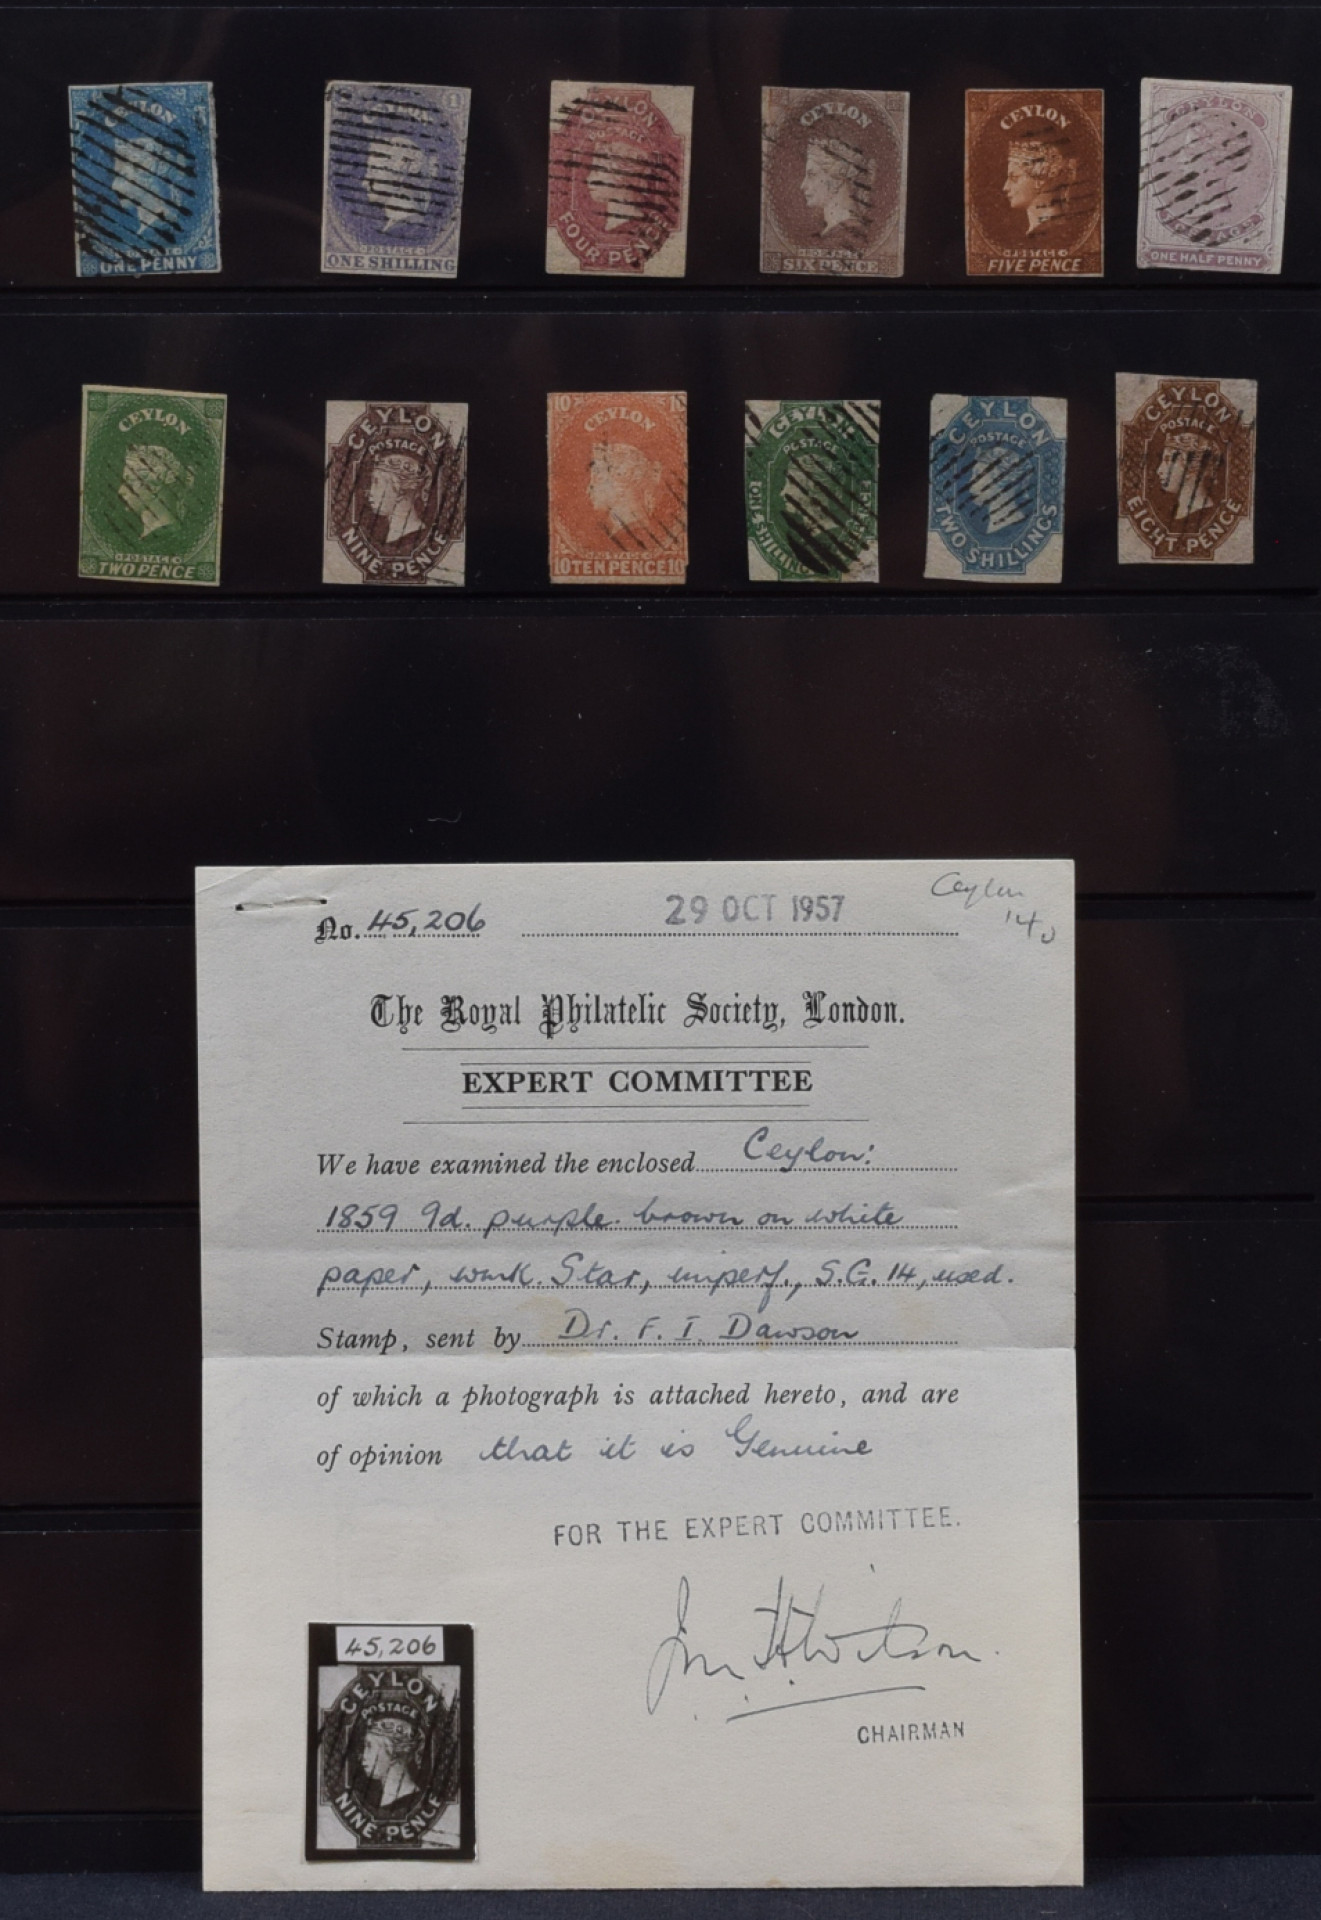 CEYLON
POSTAGE
ONE PENNY
1
CEYLON
POSTAGE
ONE SHILLING
CEYLON
POSTAGE
FOUR PENCE
CEYLON
POSTAGE
SIX PENCE
CEYLON
POSTAGE
FIVE PENCE
CEYLON
POSTAGE
ONE HALF PENNY
CEYLON
POSTAGE
TWO PENCE
CEYLON
POSTAGE
NINE PENCE
10 CEYLON 10
10 TEN PENCE 10
CEYLON
POSTAGE
SHILLING
CEYLON
POSTAGE
TWO SHILLINGS
CEYLON
POSTAGE
EIGHT PENCE
Ceylon
No. 45,206 29 OCT 1957
The Royal Philatelic Society, London.
EXPERT COMMITTEE
We have examined the enclosed Ceylon:
1859 9d. purple brown on white
paper, wmk. Star, imperf., S.G. 14, used.
Stamp, sent by Dr. F. I. Dawson
of which a photograph is attached hereto, and are
of opinion that it is Genuine
FOR THE EXPERT COMMITTEE.
CHAIRMAN
45,206
CEYLON
POSTAGE
NINE PENCE